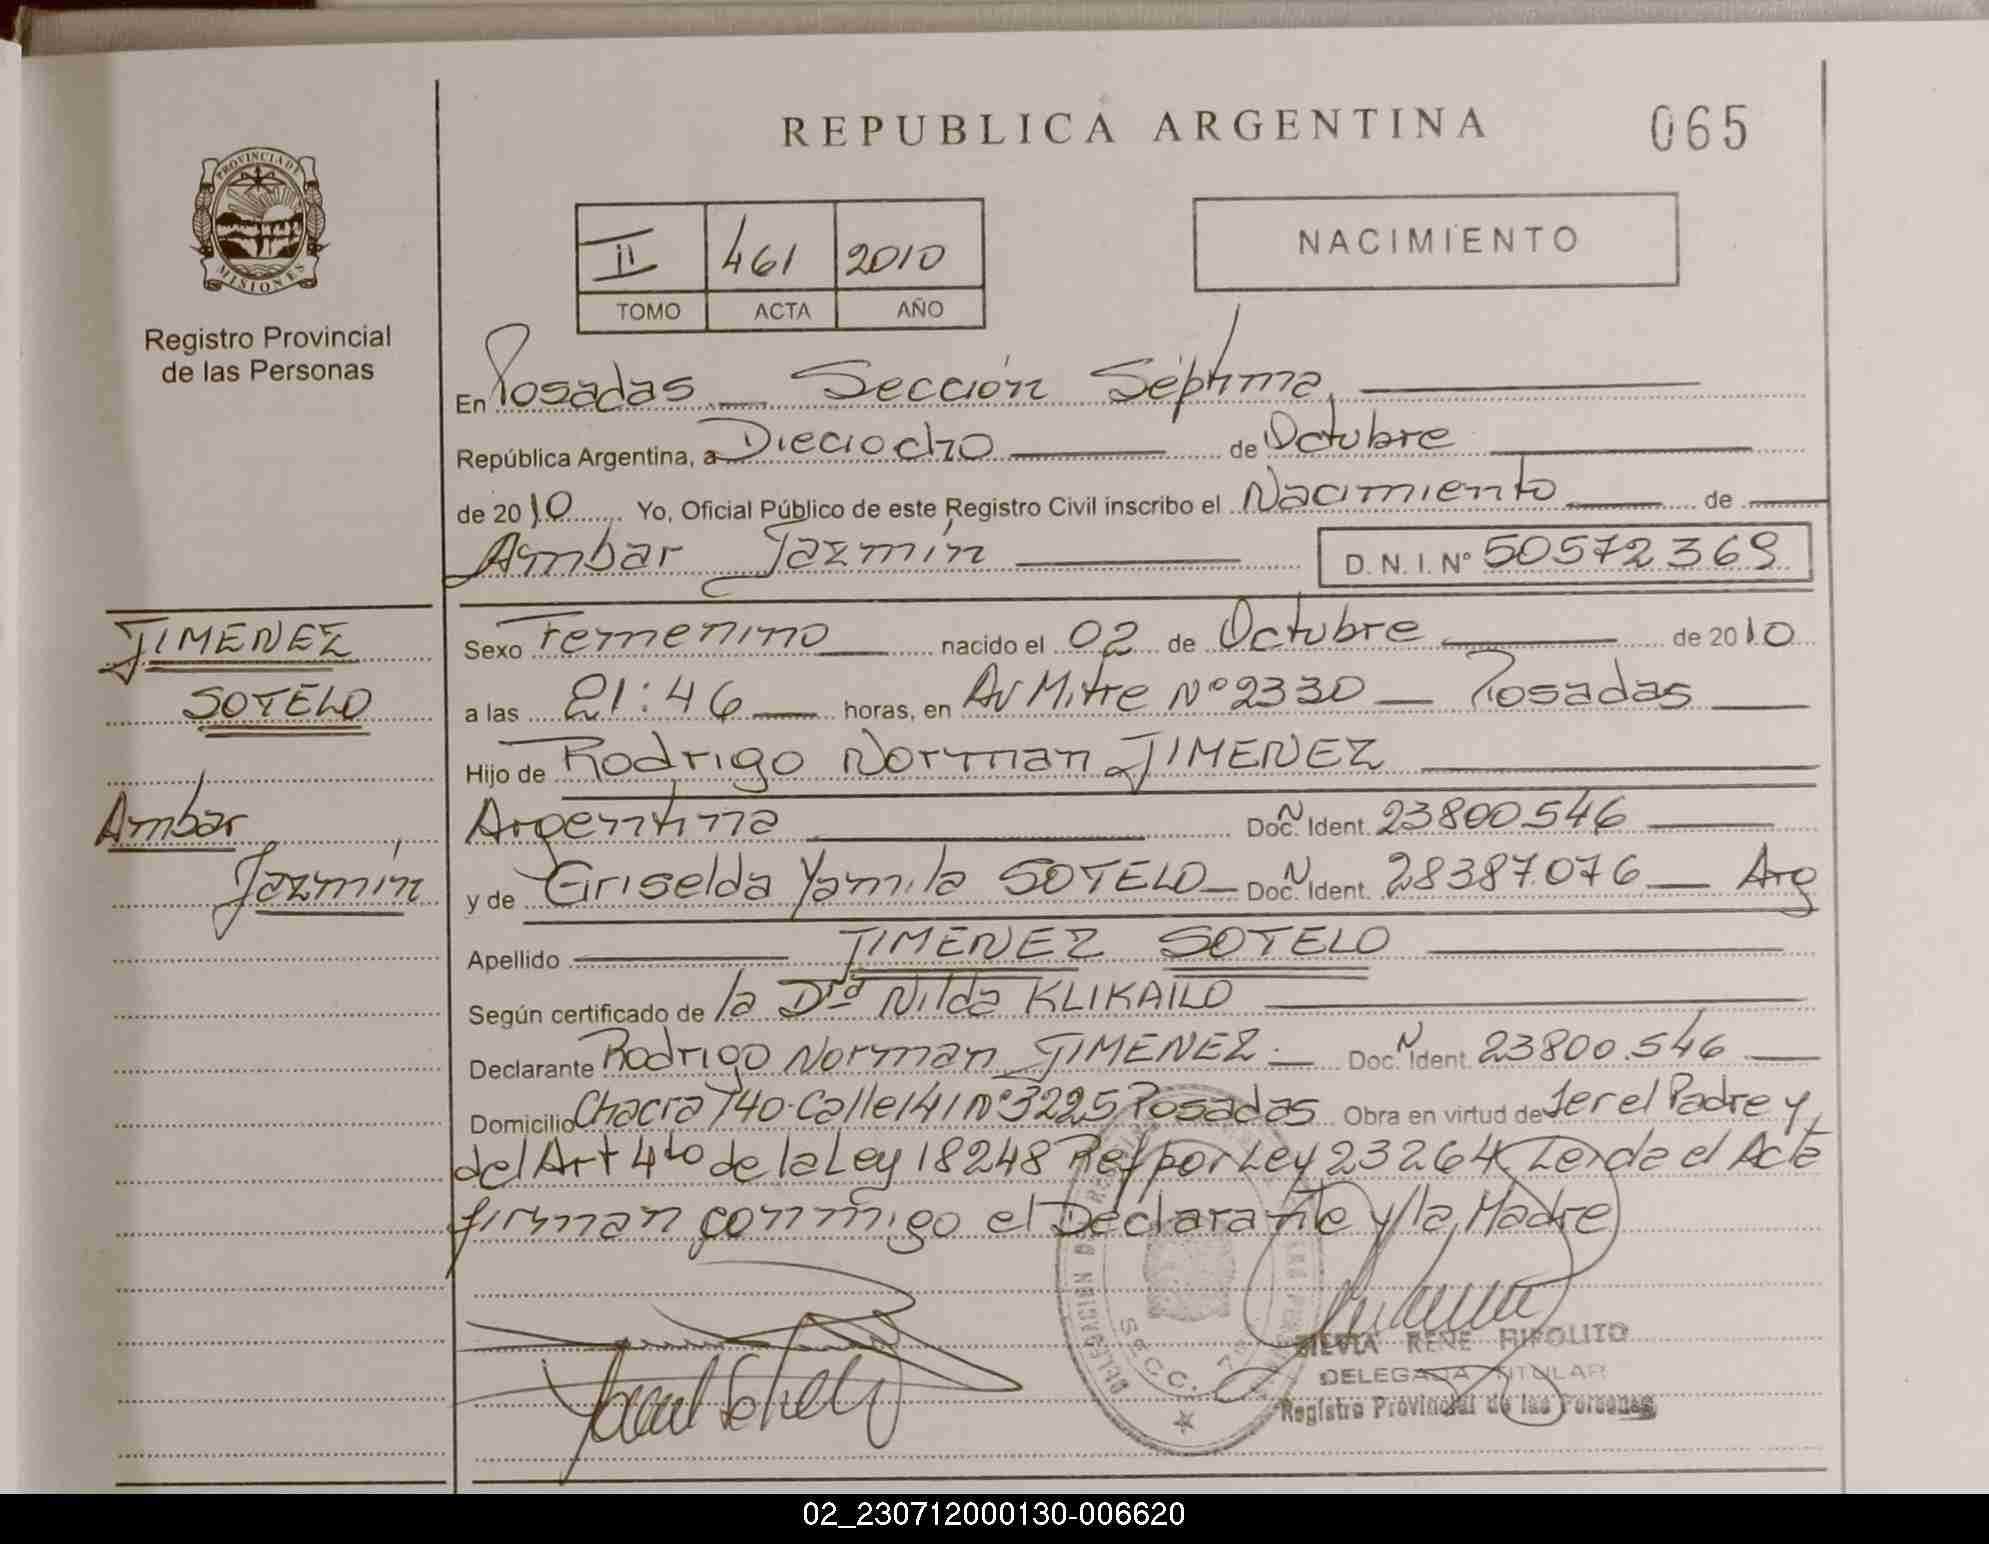 REPUBLICA ARGENTINA
065
PROVINCIA DE
MISIONES
Registro Provincial
de las Personas
II 461 2010
TOMO ACTA AÑO
NACIMIENTO
En Posadas — Sección Séptima,
República Argentina, a Dieciocho de Octubre
de 2010 Yo, Oficial Público de este Registro Civil inscribo el Nacimiento de
Ambar Jazmín D. N. I. Nº 50572369
JIMENEZ
SOTELO
Ambar
Jazmín
Sexo Femenino nacido el 02 de Octubre de 2010
a las 21:46 horas, en Av Mitre Nº 2330 — Posadas
Hijo de Rodrigo Norman JIMENEZ
Argentina Doc. N Ident. 23800.546
y de Griselda Yamila SOTELO — Doc. N Ident. 28387.076 — Arg
Apellido JIMENEZ SOTELO
Según certificado de la Dra Nilda KLIKAILO
Declarante Rodrigo Norman JIMENEZ. — Doc. N Ident. 23800.546
Domicilio Chacra 140. Calle 141 nº 3225 Posadas Obra en virtud de ser el Padre y
del Art 4to de la Ley 18248 Ref por Ley 23264 Leida el Acta
firman conmigo el Declarante y la Madre
SECC. 7
SILVIA RENE HIPOLITO
DELEGADA TITULAR
Registro Provincial de las Personas
02_230712000130-006620